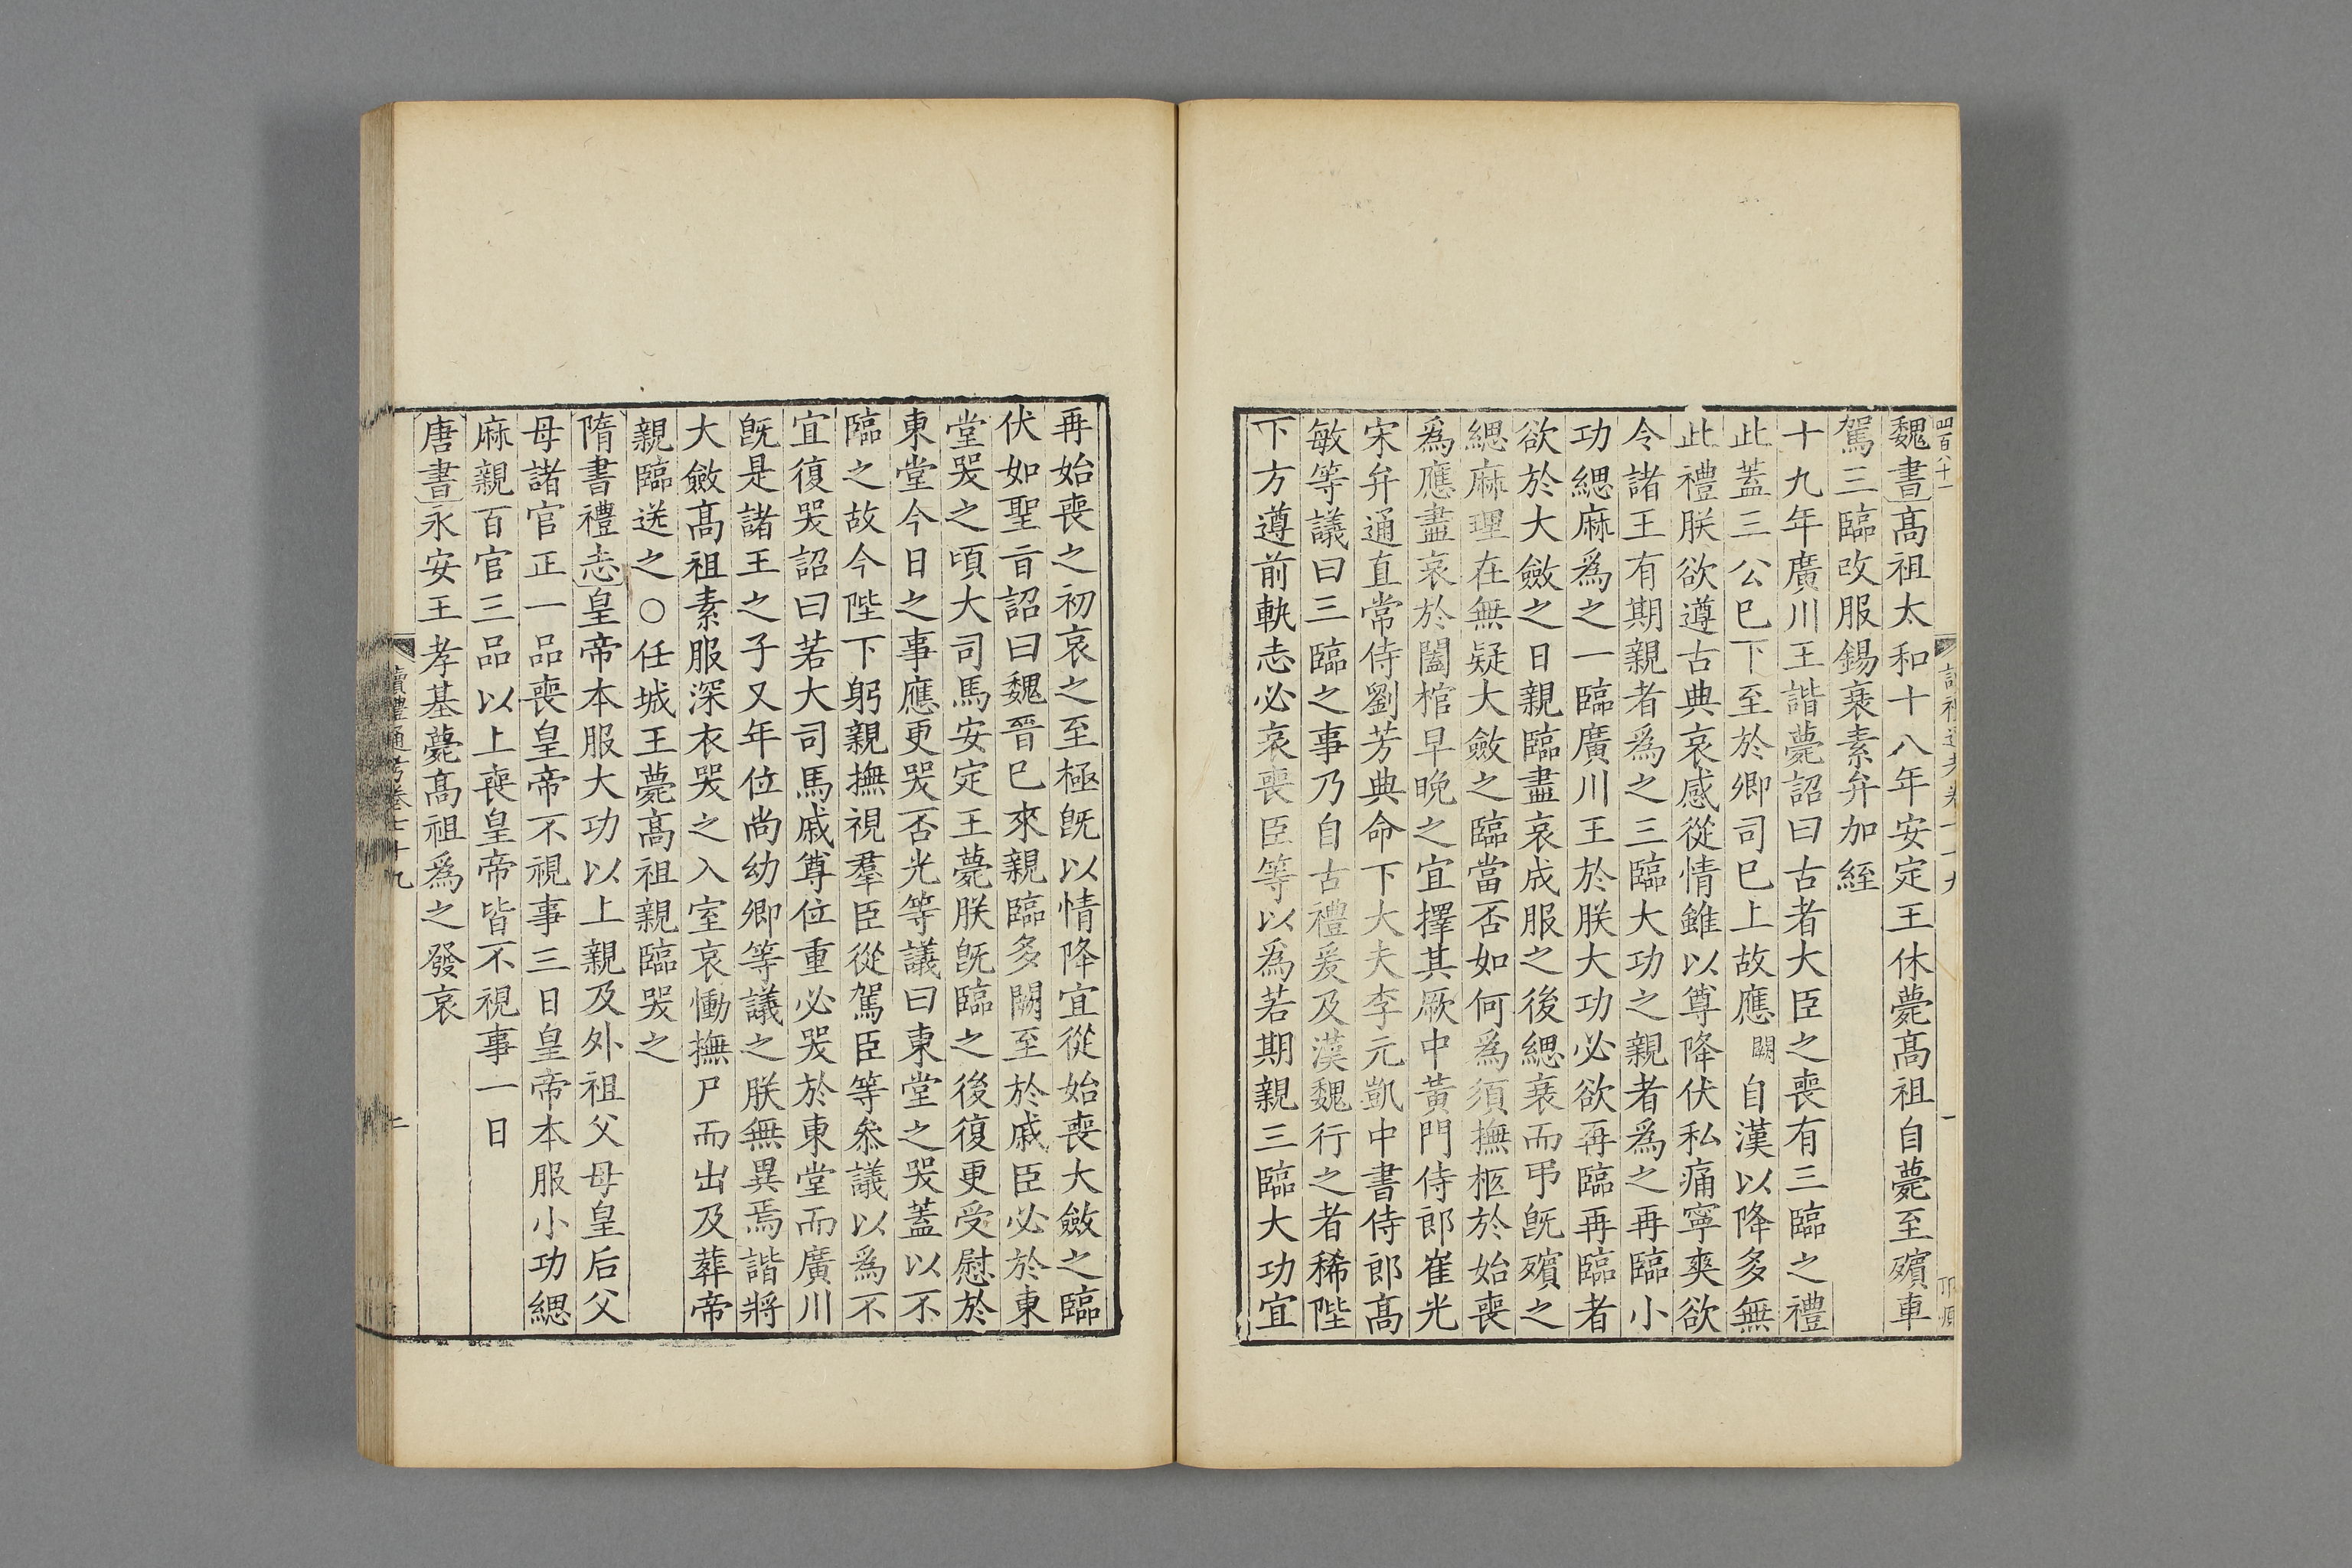 四百八十一
魏書高祖太和十八年安定王休薨髙祖自薨至殯車
駕三臨改服錫衰素弁加絰
十九年廣川王諧薨詔曰古者大臣之喪有三臨之禮
此蓋三公巳下至於卿司巳上故應闕自漢以降多無
此禮朕欲遵古典哀感從情雖以尊降伏私痛寧爽欲
令諸王有期親者爲之三臨大功之親者爲之再臨小
功緦麻爲之一臨廣川王於朕大功必欲再臨再臨者
欲於大斂之日親臨盡哀成服之後緦衰而弔旣殯之
緦麻理在無疑大斂之臨當否如何爲須撫柩於始喪
爲應盡哀於闔棺早晚之宜擇其厥中黃門侍郎崔光
宋弁通直常侍劉芳典命下大夫李元凱中書侍郎髙
敏等議曰三臨之事乃自古禮爰及漢魏行之者稀陛
下方遵前軌志必哀喪臣等以爲若期親三臨大功宜
再始喪之初哀之至極旣以情降宜從始喪大斂之臨
伏如聖旨詔曰魏晉巳來親臨多闕至於戚臣必於東
堂哭之頃大司馬安定王薨朕旣臨之後復更受慰於
東堂今日之事應更哭否光等議曰東堂之哭蓋以不
臨之故今陛下躬親撫視羣臣從駕臣等叅議以爲不
宜復哭詔曰若大司馬戚尊位重必哭於東堂而廣川
旣是諸王之子又年位尚幼卿等議之朕無異焉諧將
大斂髙祖素服深衣哭之入室哀慟撫尸而出及葬帝
親臨送之○任城王薨髙祖親臨哭之
隋書禮志皇帝本服大功以上親及外祖父母皇后父
母諸官正一品喪皇帝不視事三日皇帝本服小功緦
麻親百官三品以上喪皇帝皆不視事一日
唐書永安王孝基薨髙祖爲之發哀
讀禮通考卷七十九